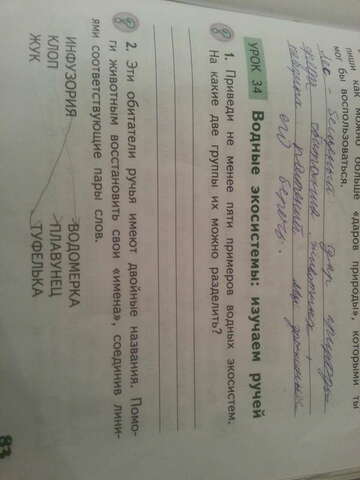 пиши как можно больше «даров природы», которыми ты
мог бы воспользоваться.
УРОК 34 Водные экосистемы: изучаем ручей
1. Приведи не менее пяти примеров водных экосистем.
На какие две группы их можно разделить?
2. Эти обитатели ручья имеют двойные названия. Помо-
ги животным восстановить свои «имена», соединив лини-
ями соответствующие пары слов.
ИНФУЗОРИЯ ВОДОМЕРКА
КЛОП ПЛАВУНЕЦ
ЖУК ТУФЕЛЬКА
83